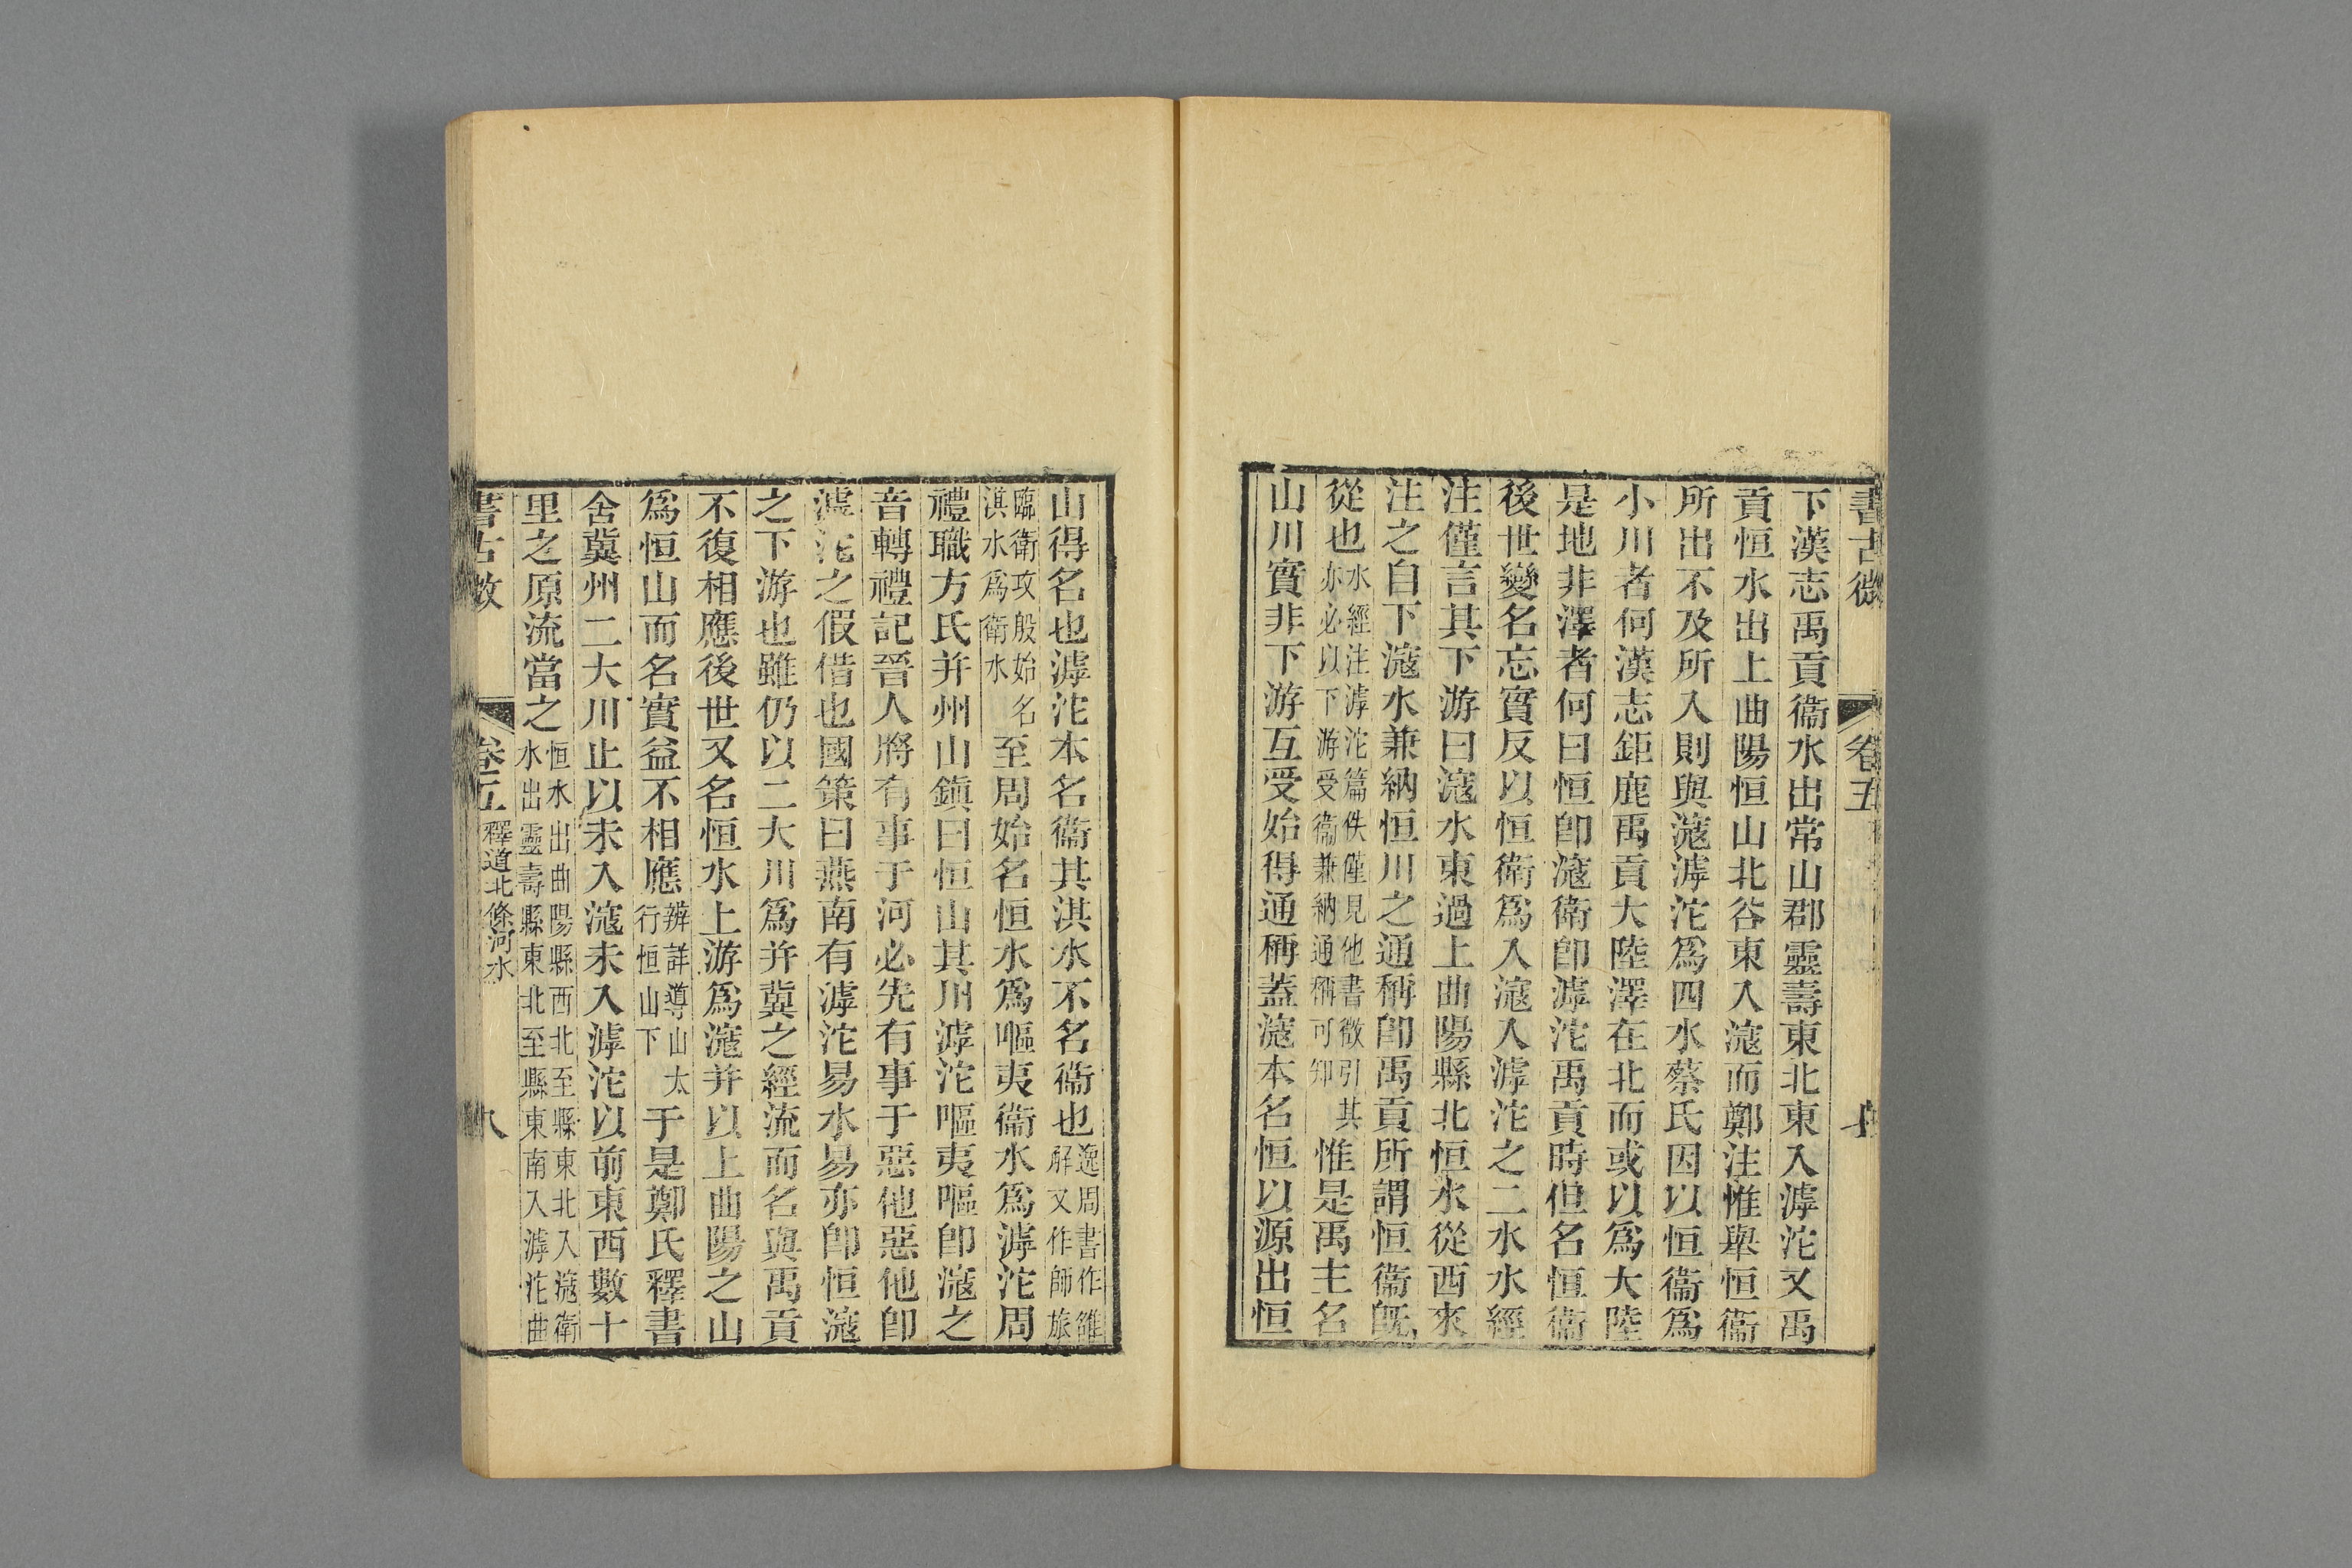 書古微 卷五
下漢志禹貢衞水出常山郡靈壽東北東入滹沱又禹
貢恒水出上曲陽恒山北谷東入滱而鄭注惟舉恒衞
所出不及所入則與滱滹沱爲四水蔡氏因以恒衞爲
小川者何漢志鉅鹿禹貢大陸澤在北而或以爲大陸
是地非澤者何曰恒卽滱衞卽滹沱禹貢時但名恒衞
後世變名忘實反以恒衞爲入滱入滹沱之二水水經
注僅言其下游曰滱水東過上曲陽縣北恒水從西來
注之自下滱水兼納恒川之通稱卽禹貢所謂恒衞旣
從也水經注滹沱篇佚僅見他書徵引其亦必以下游受衞兼納通稱可知惟是禹主名
山川實非下游互受始得通稱蓋滱本名恒以源出恒
山得名也滹沱本名衞其淇水不名衞也逸周書作雒解又作師旅
臨衛攻殷始名淇水爲衛水至周始名恒水爲嘔夷衞水爲滹沱周
禮職方氏并州山鎭曰恒山其川滹沱嘔夷嘔卽滱之
音轉禮記晉人將有事于河必先有事于惡他惡他卽
滹沱之假借也國策曰燕南有滹沱易水易亦卽恒滱
之下游也雖仍以二大川爲并冀之經流而名與禹貢
不復相應後世又名恒水上游爲滱并以上曲陽之山
爲恒山而名實益不相應辨詳導山太行恒山下于是鄭氏釋書
舍冀州二大川止以未入滱未入滹沱以前東西數十
里之原流當之恒水出曲陽縣西北至縣東北入滱衛水出靈壽縣東北至縣東南入滹沱曲
書古微 卷五 釋道北條河水 八